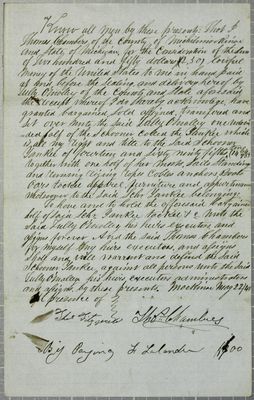 Know all Men by these presents that I
Thomas Chambers of the County of Michilimackinac
and State of Michigan for the Consideration of the Sum
of Two hundred and fifty dollars 250 lawful
Money of the United States to me in hand paid
at and before the Sealing and delivery hereof by
Tully of the County and State aforesaid
the receipt whereof I do hereby acknowledge, have
granted bargained Sold assigned, transferred and
Set over unto the Said Tully
half of the Schooner Called the Yankee which
is all my right and title to the Said Schooner
Yankee of burthen and Sixty ninety fifths
Together with one half of her Masts Sails Standing
and running Rigging ropes Cables anchors
Oars tackle apparel furniture and appurtenances
belonging to the Said Schr Yankee belonging
To have and to hold the aforesaid bargained
half of Said Schr Yankee tackle &c unto the
Said Tully his heirs executors and
assigns forever. And I the Said Thomas Chambers
for myself my heirs executors, and assigns
Shall and will warrant and defend the Said
Schooner Yankee, against all persons unto the Said
Tully his heirs executors administrators
and assigns by these presents. Mackinac 22
in presence of
Thos P Chambers
By Paying